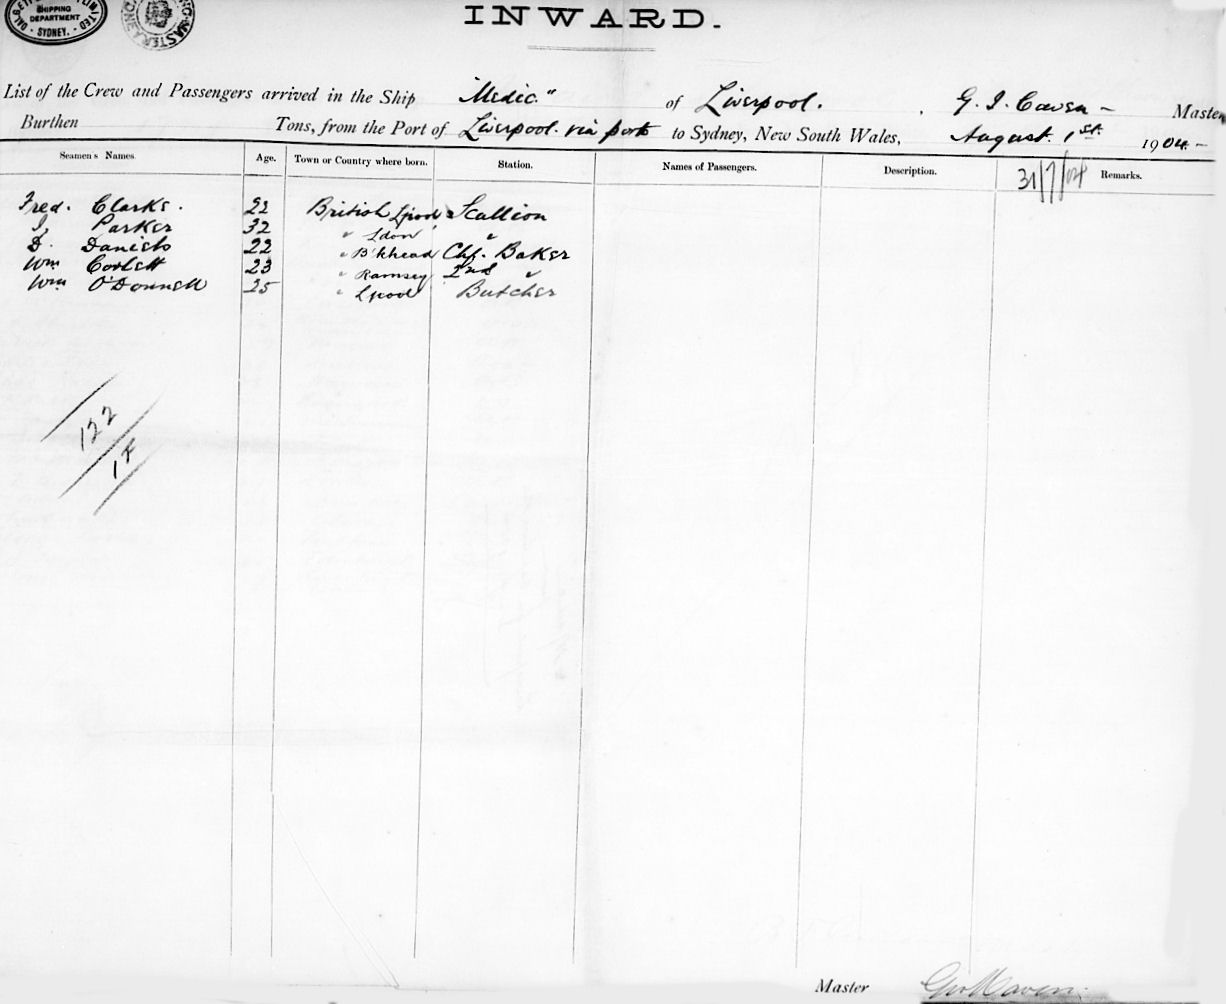 INWARD.
SHIPPING
DEPARTMENT
SYDNEY.
List of the Crew and Passengers arrived in the Ship "Medic" of Liverpool. , G. J. Cawen — Master
Burthen Tons, from the Port of Liverpool. via ports to Sydney, New South Wales, August. 1st. 1904 —
Seamen's Names. Age. Town or Country where born. Station. Names of Passengers. Description. Remarks.
31/7/04
Fred. Clarke. 22 British Lpool Scullion
J. Parker 32 " Ldon "
D. Daniels 22 " B'khead Chf. Baker
Wm 23 " Ramsey 2nd "
Wm O'Donnell 25 " Lpool Butcher
122
17
Master